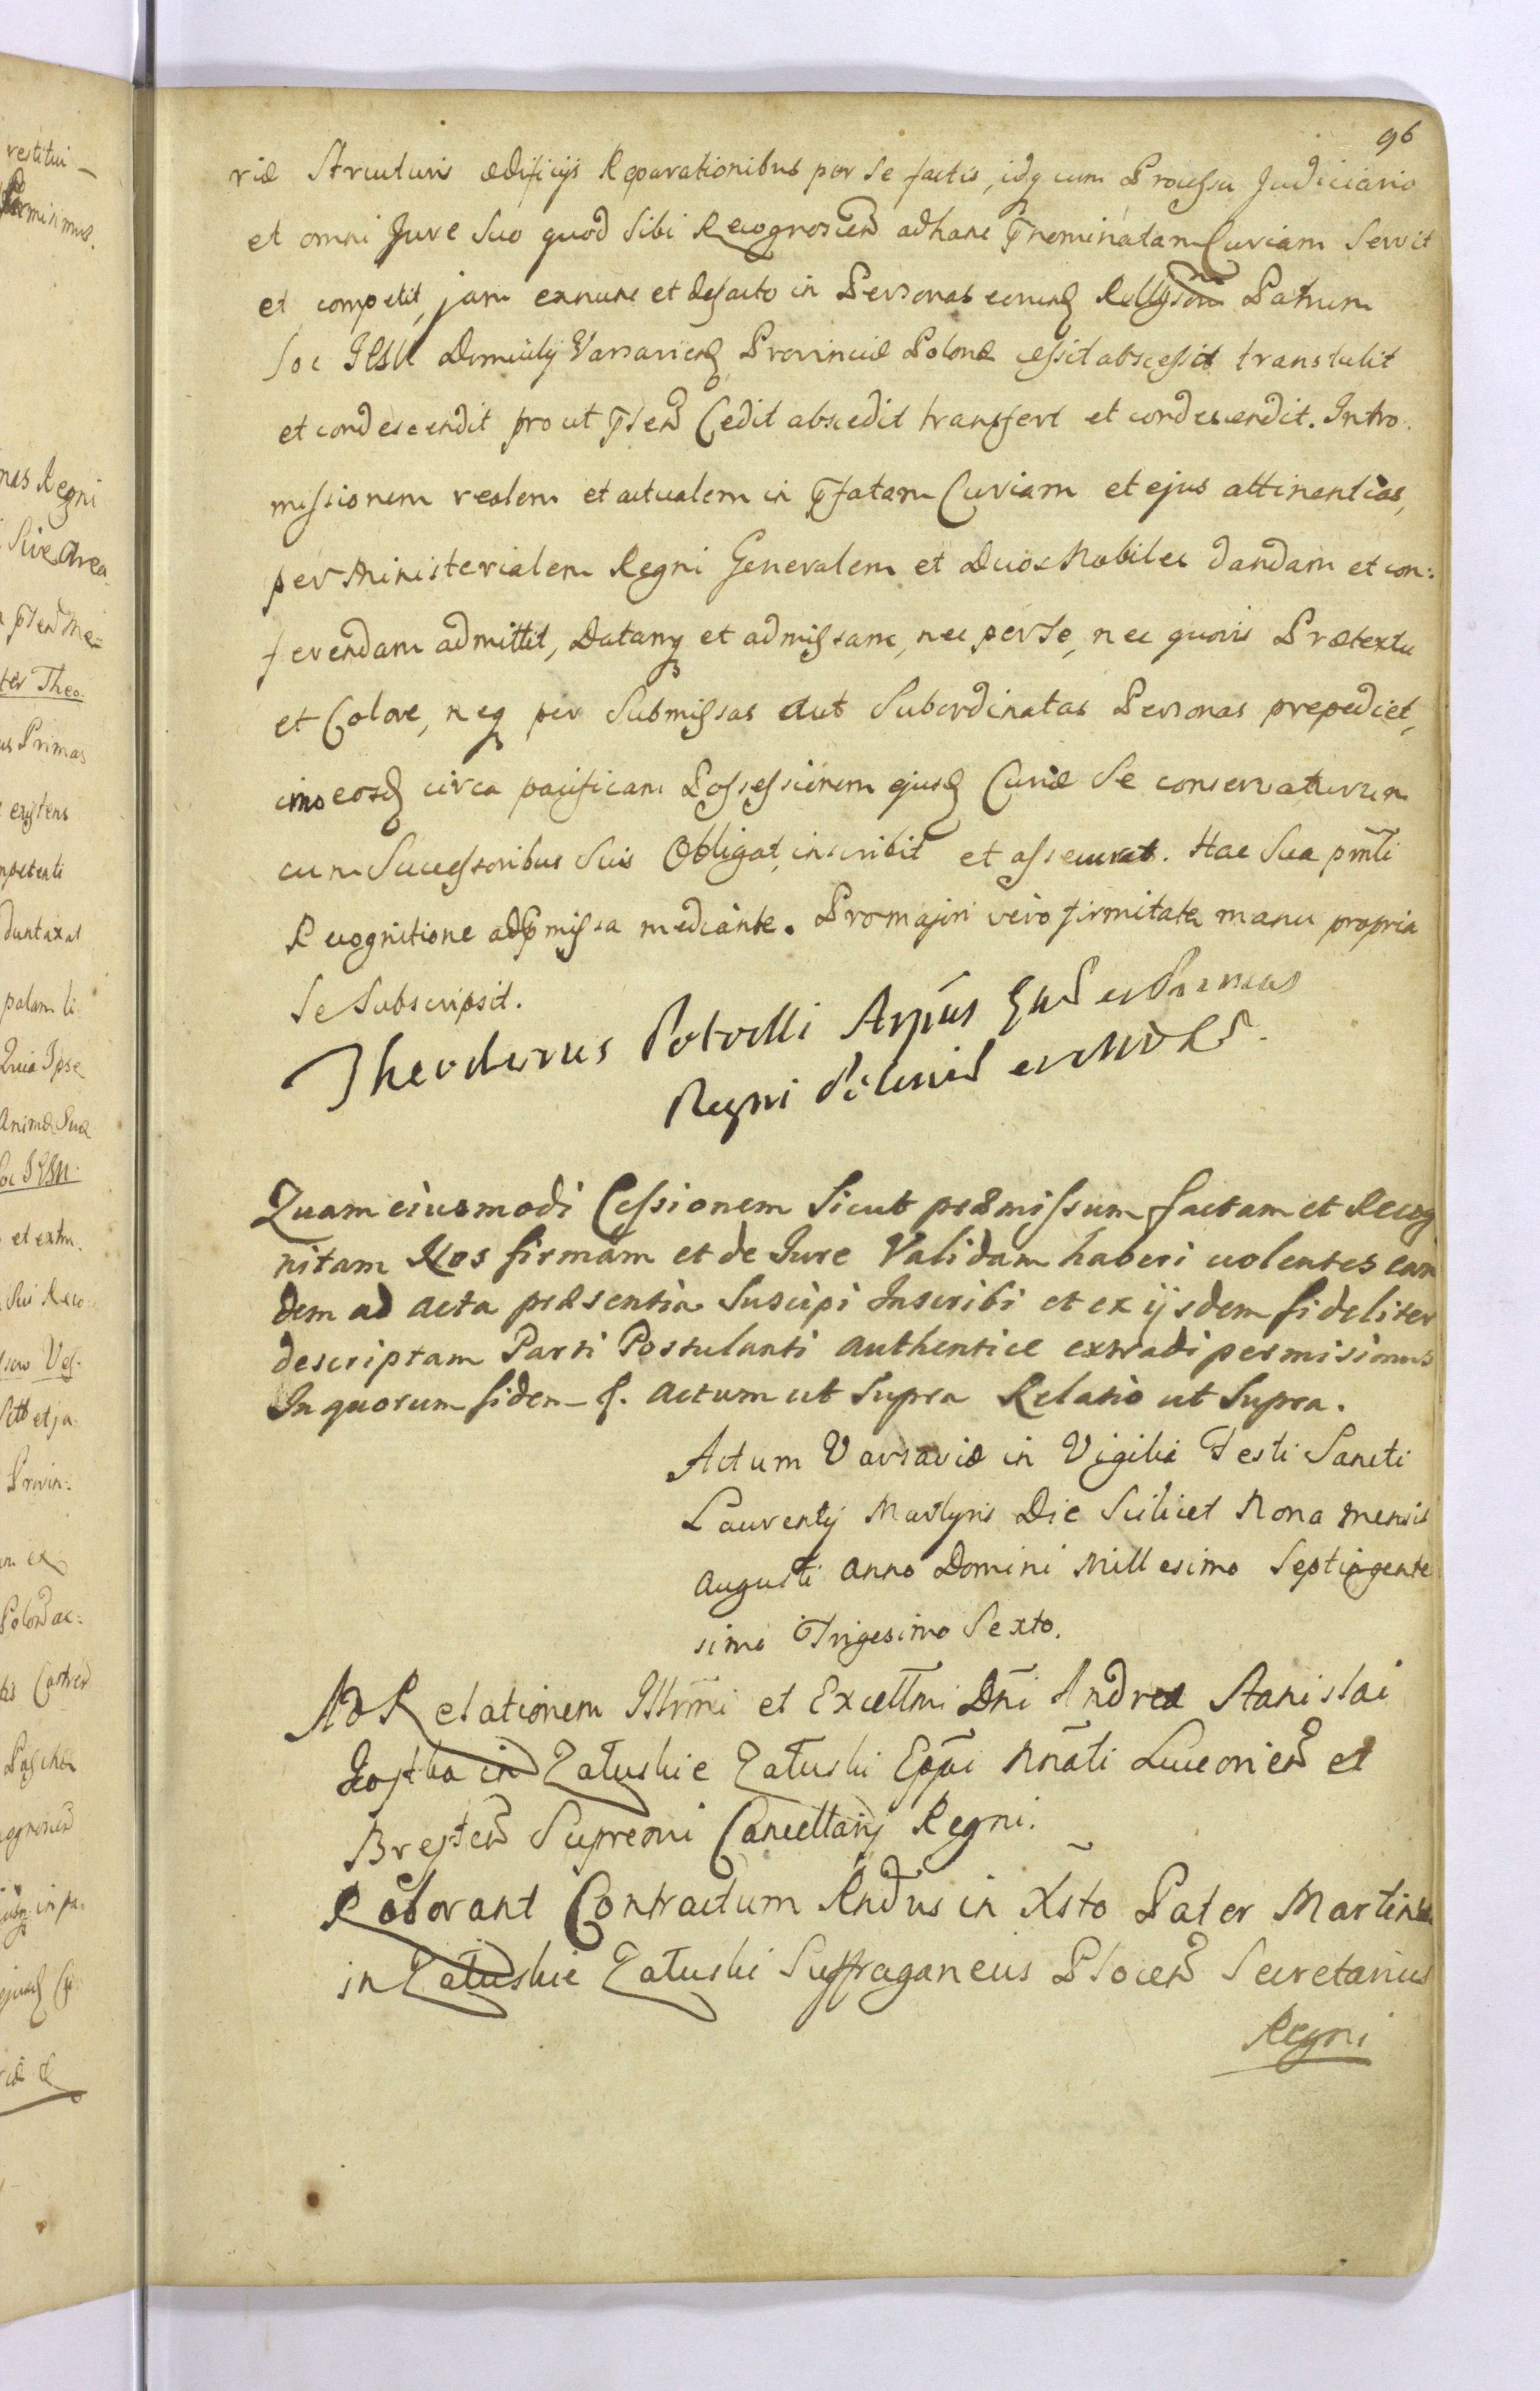 96
riæ Structuris ædificijs Reparationibus per se factis, idq cum Processu Judiciario
et omni Jure Suo quod Sibi Recognoscen ad hanc pnominatam Curiam Servit
et competit, jam exnunc et defacto in Personas eorund Religson Patrum
Soc IESU Domicilij Varsaviens Provinciæ Polonæ cessit abscessit transtulit
et condescendit prout pnsen Cedit abscedit transfert et condescendit. Intro
missionem realem et actualem in pfatam Curiam et ejus attinentias,
per Ministerialem Regni Generalem et Duos Nobiles dandam et con:
ferendam admittit, Datamq et admissam, nec per Se, nec quovis Prætextu
et Colore, neq per Submissas aut Subordinatas Personas prepediet,
imo eosd circa pacificam Possessionem ejusd Curiæ Se conservaturum
cum Successoribus Suis Obligat, inscribit et assecurat. Hac Sua pnti
Recognitione ad pmissa mediante. Pro majori vero firmitate manu propria
Se Subscripsit.
Theodorus Potocki Arpus Gnes Primas
Regni Poloniæ
Quam eiusmodi Cessionem Sicut præmissum factam et Recog
nitam Nos firmam et de Jure Validam haberi volentes ean
dem ad acta præsentia Suscipi Inscribi et ex ijsdem fideliter
descriptam Parti Postulanti authentice extradi permisimus
In quorum fidem _ &. actum ut Supra Relatio ut Supra.
Actum Varsaviæ in Vigilia Festi Sancti
Laurentij Martyris Die Scilicet Nona mensis
Augusti Anno Domini Millesimo Septingente
simo Trigesimo Sexto.
Ad Relationem Illrmi et Excellmi Dni Andreæ Stanislai
Kostka in Załuskie Załuski Eppi Nnati Luceorien et
Bresten Supremi Cancellarij Regni.
Roborant Contractum Rndus in Xsto Pater Martinus
in Załuskie Załuski Suffraganeus Plocen Secretarius
Regni